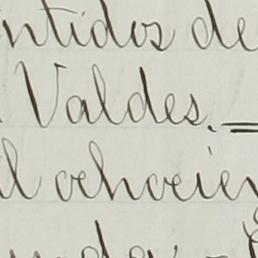 entidos de
Valdes. =
l ochocien